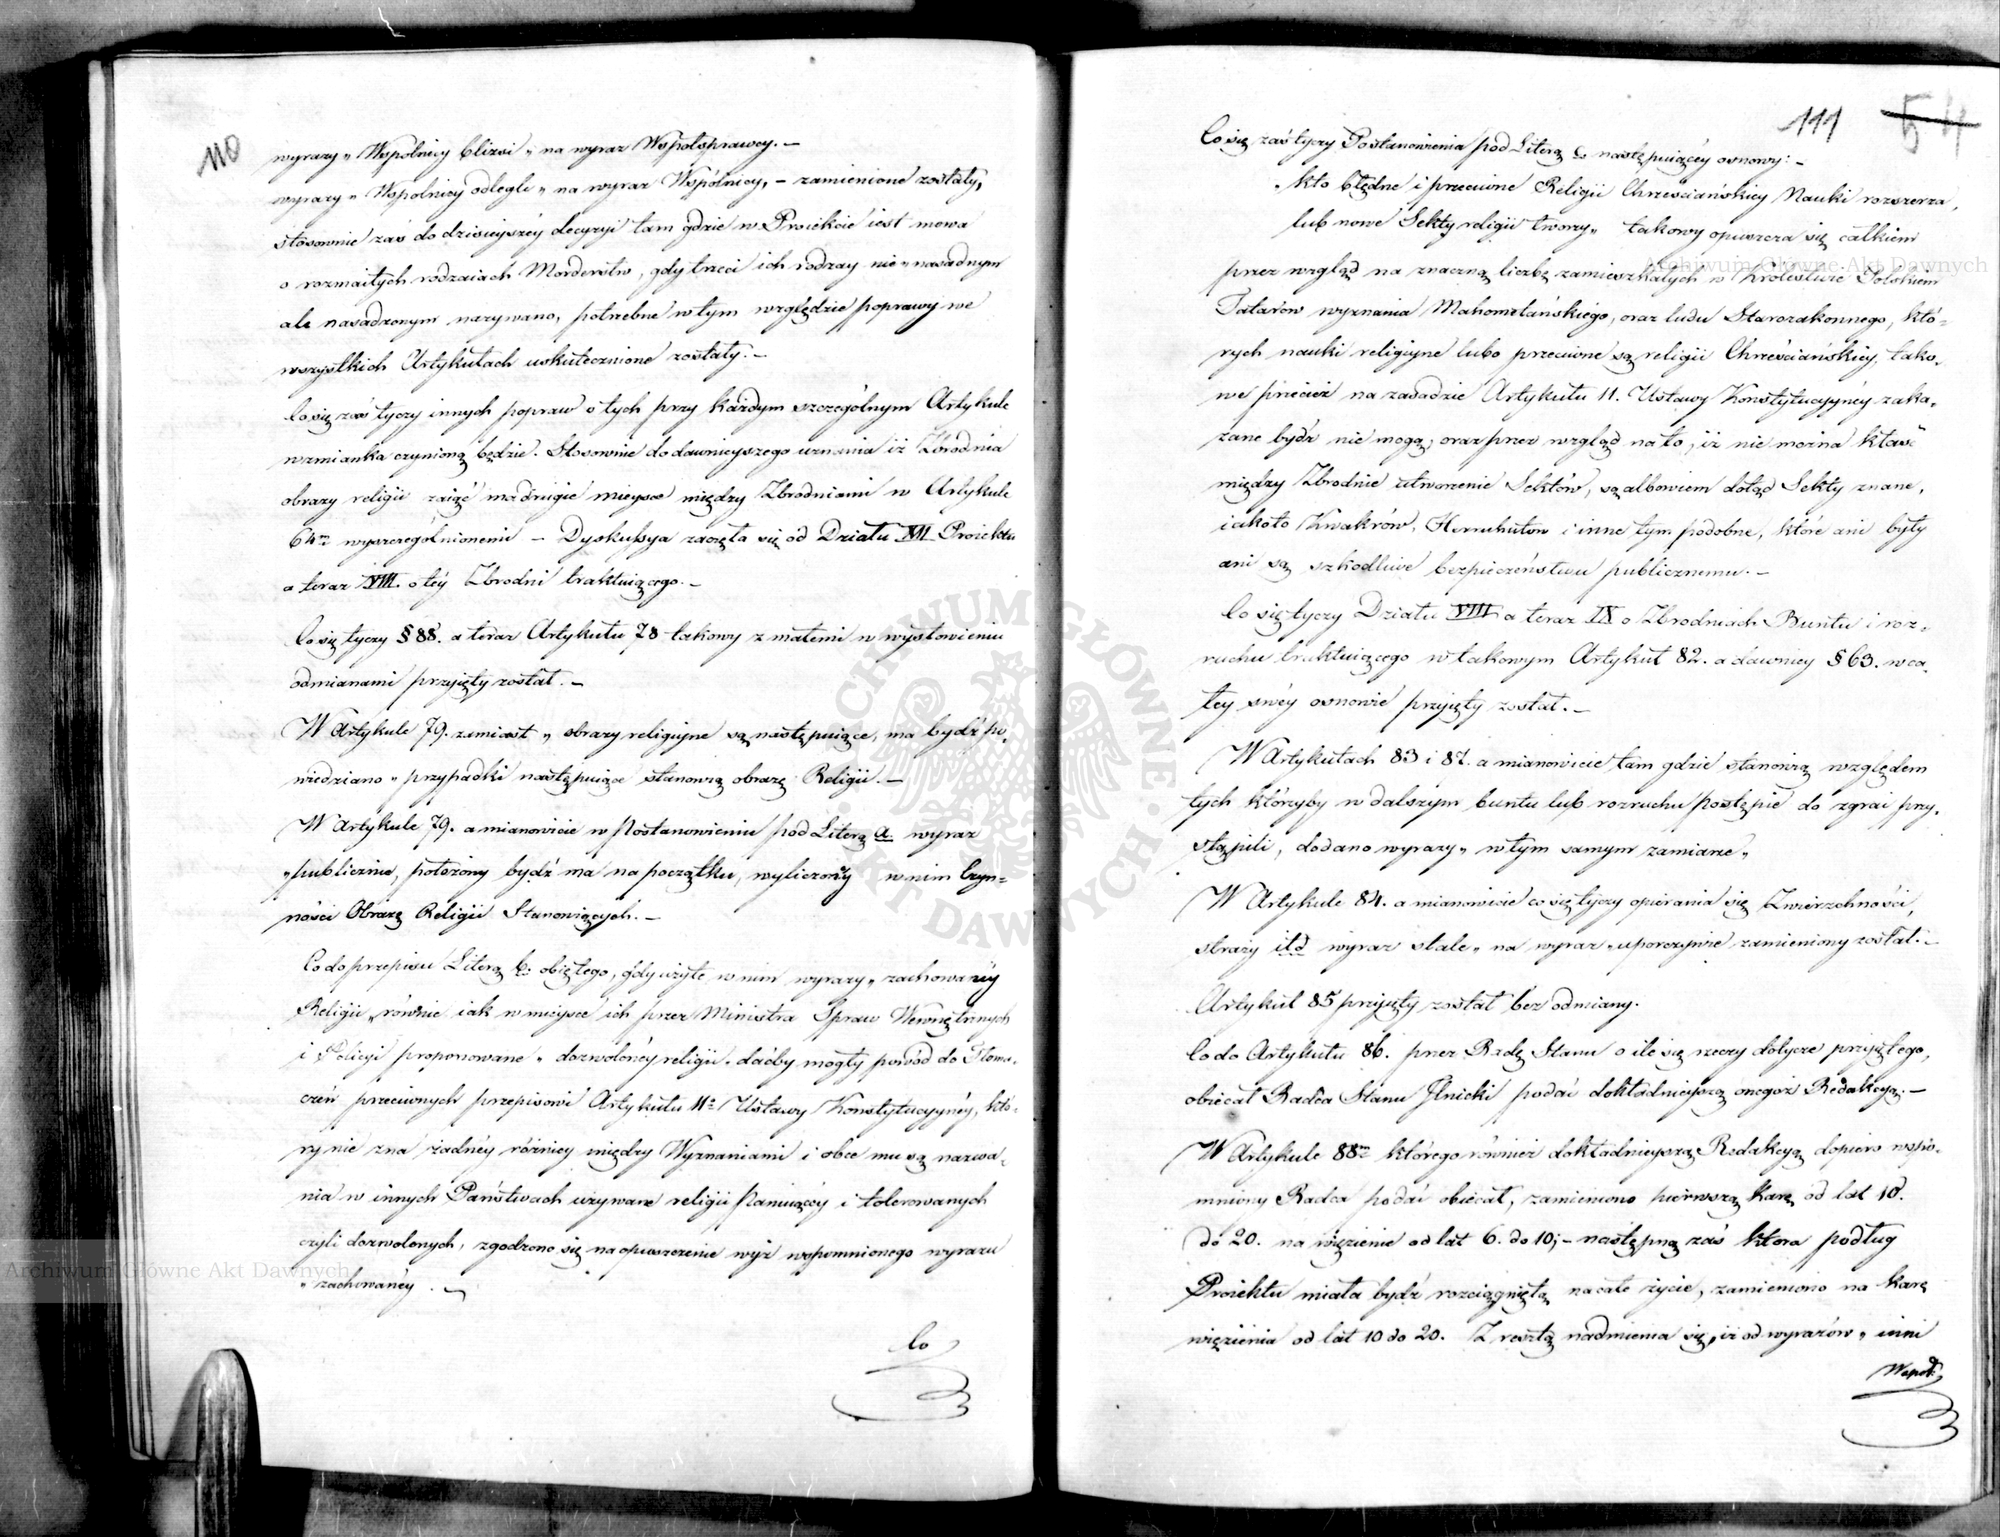 110
wyrazy „ Wspólnicy bliżsi „ na wyraz Współsprawcy. –
wyrazy „ Wspolnicy odlegli „ na wyraz Wspólnicy, – zamienione zostały,
stosownie zaś do dzisieyszéy decyzyi tam gdzie w Proiekcie iest mowa
o rozmaitych rodzaiach Morderstw, gdy trzeci ich rodzay nie „ nasadnym
ale nasadzonym nazywano, potrzebne w tym względzie poprawy we
wszystkich Artykułach uskutecznione zostały. –
Co się zaś tyczy innych popraw o tych przy każdym szczególnym Artykule
wzmianka czynioną będzie. Stosownie do dawnieyszego uznania iż Zbrodnia
obrazy religii zaiąć ma drugie mieysce między Zbrodniami w Artykule
64m wyszczególnionemi – Dyskussya zaczęła się od Działu XVII Proiektu
a teraz VIII. o téy Zbrodni traktuiącego. –
Co się tyczy § 88. a teraz Artykułu 78 takowy z małemi w wysłowieniu
odmianami przyięty został. –
W Artykule 79. zamiast „ obrazy religiyne są następuiące, ma bydź po,
wiedziano „ przypadki następuiące stanowią obrazę Religii. –
W Artykule 79. a mianowicie w Postanowieniu pod Literą a. wyraz
„publicznie, położony bydź ma na początku, wyliczonéy w nim Czyn=
ności Obrazę Religii Stanowiących. –
Co do przepisu Literą b. obiętego, gdy użyte w nim wyrazy „ zachowanéy
Religii „ równie iak w mieysce ich przez Ministra Spraw Wewnętrznych
i Policyi proponowane „ dozwolonéy religii „ daćby mogły powód do Tłoma,
czeń przeciwnych przepisowi Artykułu 11o Ustawy Konstytucyynéy, któ,
ry nie zna żadnéy różnicy między Wyznaniami i obce mu są nazwa,
nia w innych Państwach używane religii Panuiącéy i tolerowanych
czyli dozwolonych, zgodzono się na opuszczenie wyż wspomnionego wyrazu
„ zachowanéy. –
Co
111 54
Co się zaś tyczy Postanowienia pod Literą c. następuiącéy osnowy: –
„ kto błędne i przeciwne Religii Chrześciańskiey Nauki rozszerza,
lub nowe Sekty religii tworzy „ takowy opuszcza się całkiem
przez wzgląd na znaczną liczbę zamieszkałych w Królestwie Polskiem
Tatarów wyznania Mahometańskiego, oraz ludu Starozakonnego, któ,
rych nauki religiyne lubo przeciwne są religii Chrześciańskiey, tako,
we przecież na zasadzie Artykułu 11. Ustawy Konstytucyynéy zaka,
zane bydź nie mogą; oraz przez wzgląd na to, iż nie można kłaść
między Zbrodnie utworzenie Sektów, są albowiem dotąd Sekty znane,
iakoto Kwakrów, Hernhutów i inne tym podobne, które ani były
ani są szkodliwe bezpieczeństwu publicznemu. –
Co się tyczy Działu VIII a teraz IX o Zbrodniach Buntu i roz,
ruchu traktuiącego w takowym Artykuł 82. a dawniey § 63. w ca,
łey swéy osnowie przyięty został. –
W Artykułach 83 i 87. a mianowicie tam gdzie stanowią względem
tych którzyby w dalszym buntu lub rozruchu postępie do zgrai przy,
stąpili, dodano wyrazy „ w tym samym zamiarze „
W Artykule 84. a mianowicie co się tyczy opierania się Zwierzchności,
straży itd wyraz stale „ na wyraz „ uporczywie zamieniony został. –
Artykuł 85 przyięty został bez odmiany.
Co do Artykułu 86. przez Radę Stanu o ile się rzeczy dotycze przyiętego,
obiecał Radca Stanu Jlnicki podać dokładnieyszą onegoż Redakcyą. –
W Artykule 88m którego również dokładnieyszą Redakcyą dopiero wspo,
mniony Radca podać obiecał, zamieniono pierwszą karę od lat 10.
do 20. na więzienie od lat 6. do 10; – następną zaś ktora podług
Proiektu miała bydź rozciągniętą na całe życie, zamieniono na karę
więzienia od lat 10 do 20. Z resztą nadmienia się, iż od wyrazów „ inni
Współ,
Archiwum Główne Akt Dawnych
Archiwum Główne Akt Dawnych
ARCHIWUM GŁÓWNE AKT DAWNYCH